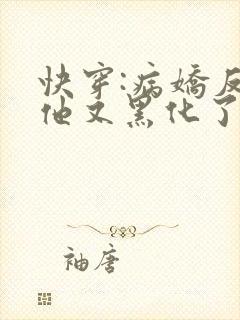 快穿:病嬌反
他又黑化了
袖唐